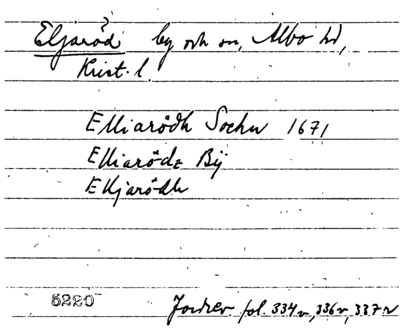 Eljaröd by och sn, Albo hd,
Krist. l.
Elliarödh Sochn 1671
Elliaröds Bÿ
Elljarödh
5220 Jordrev. fol. 334v, 336v, 337v